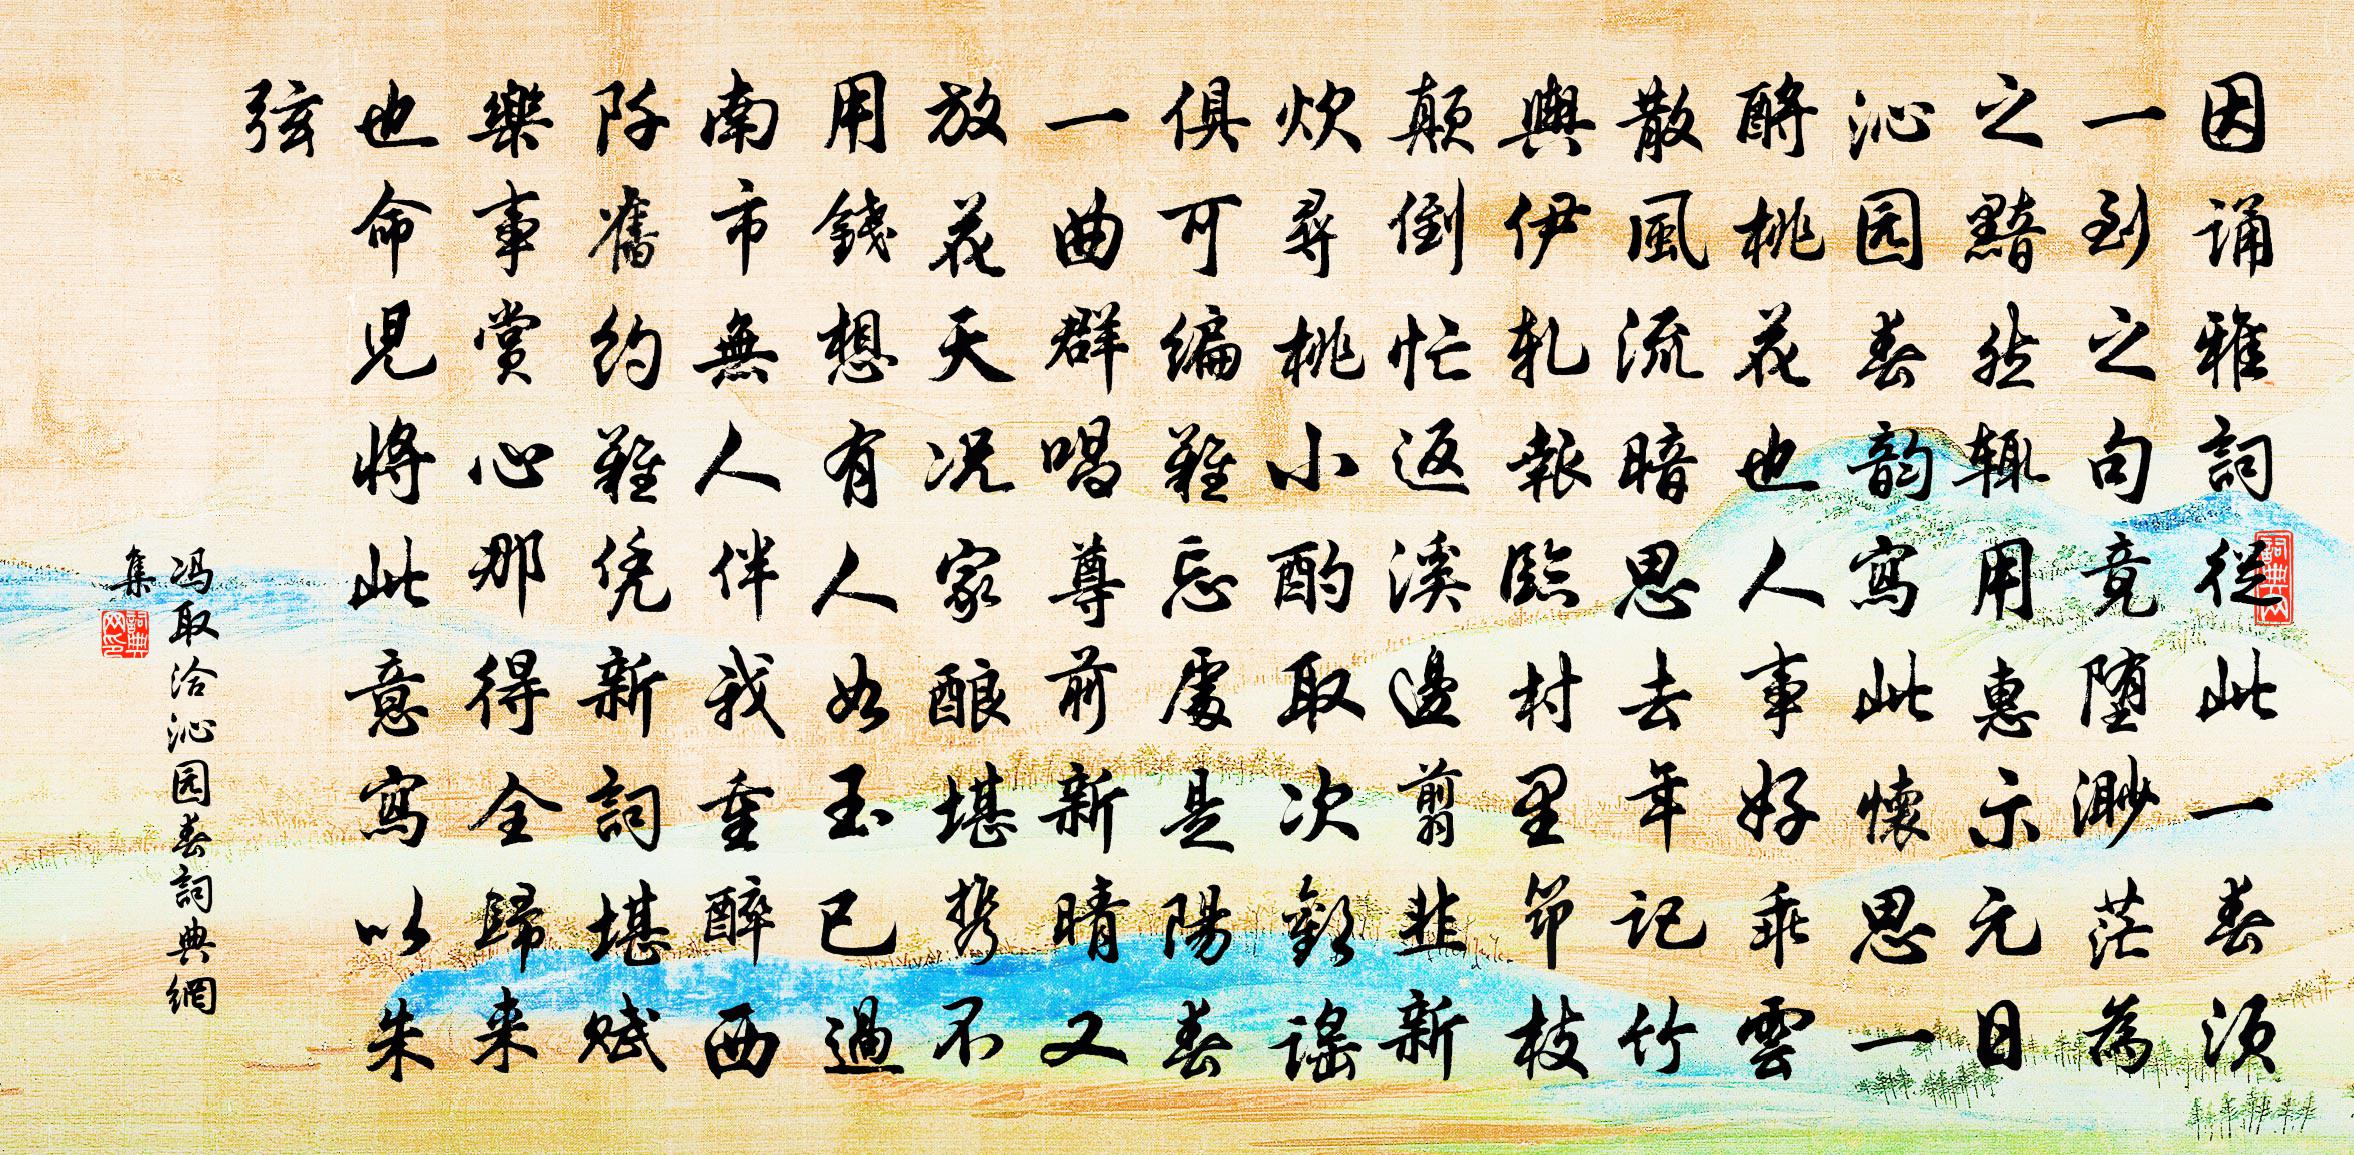 因诵雅詞從此一春須
一到之句竟堕渺茫為
之黯然辄用惠示元日
沁园春韵寫此懷思一
酹桃花也人事好乖雲
散風流暗思去年記竹
輿伊軋報臨村里筇枝
顛倒忙返溪邊剪韭新
炊尋桃小酌取次歡謠
俱可編難忘處是陽春
一曲群唱尊前新晴又
放花天况家酿堪携不
用錢想有人如玉已過
南市無人伴我重醉西
阡舊約難凭新詞堪賦
樂事賞心那得全歸来
也命兒将此意寫以朱
弦
冯取洽沁园春詞典網
集
詞典網
詞典網印